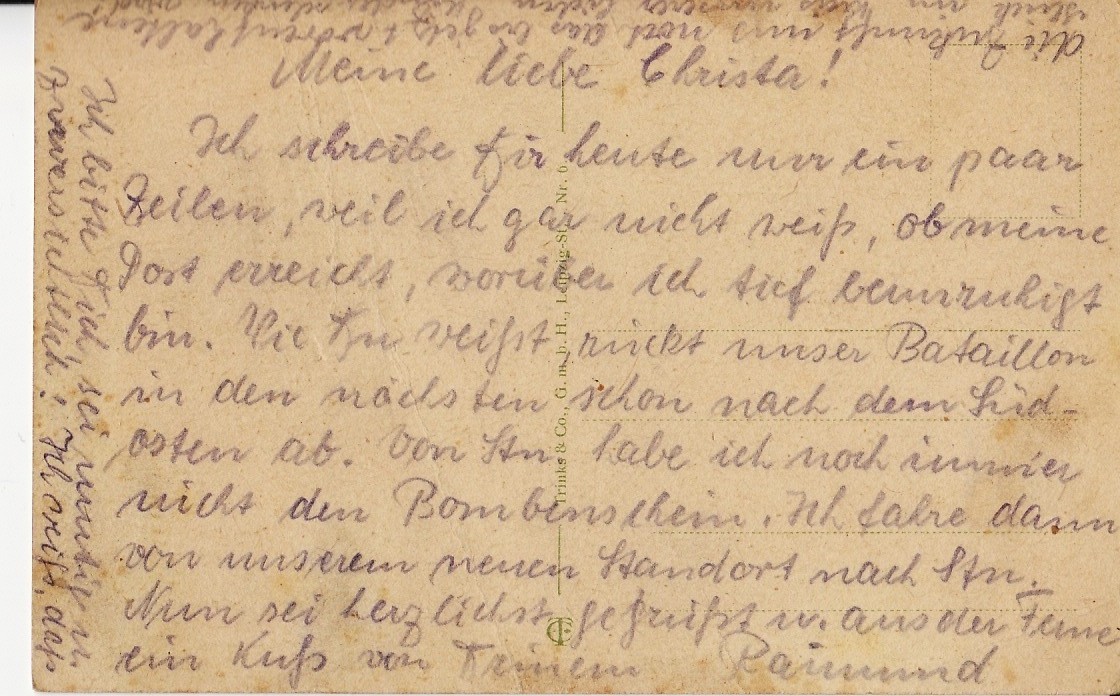 Meine liebe Christa!
Ich schreibe Dir heute nur ein paar
Zeilen, weil ich gar nicht weiß, ob meine
Post erreicht, worüber ich tief beunruhigt
bin. Wie Du weißt rückt unser Bataillon
in den nächsten schon nach dem Süd-
osten ab. Von Stn. habe ich noch immer
nicht den Bombenschein. Ich fahre dann
von unserem neuen Standort nach Stn.
Nun sei herzlichst gegrüßt u. aus der Ferne
ein Kuß von Deinem Raimund
Ich bitte Dich, sei mutig u.
zuversichtlich! Ich weiß, daß
die Zukunft uns
Trinks & Co., G. m. b. H., Leipzig-St., Nr. 6